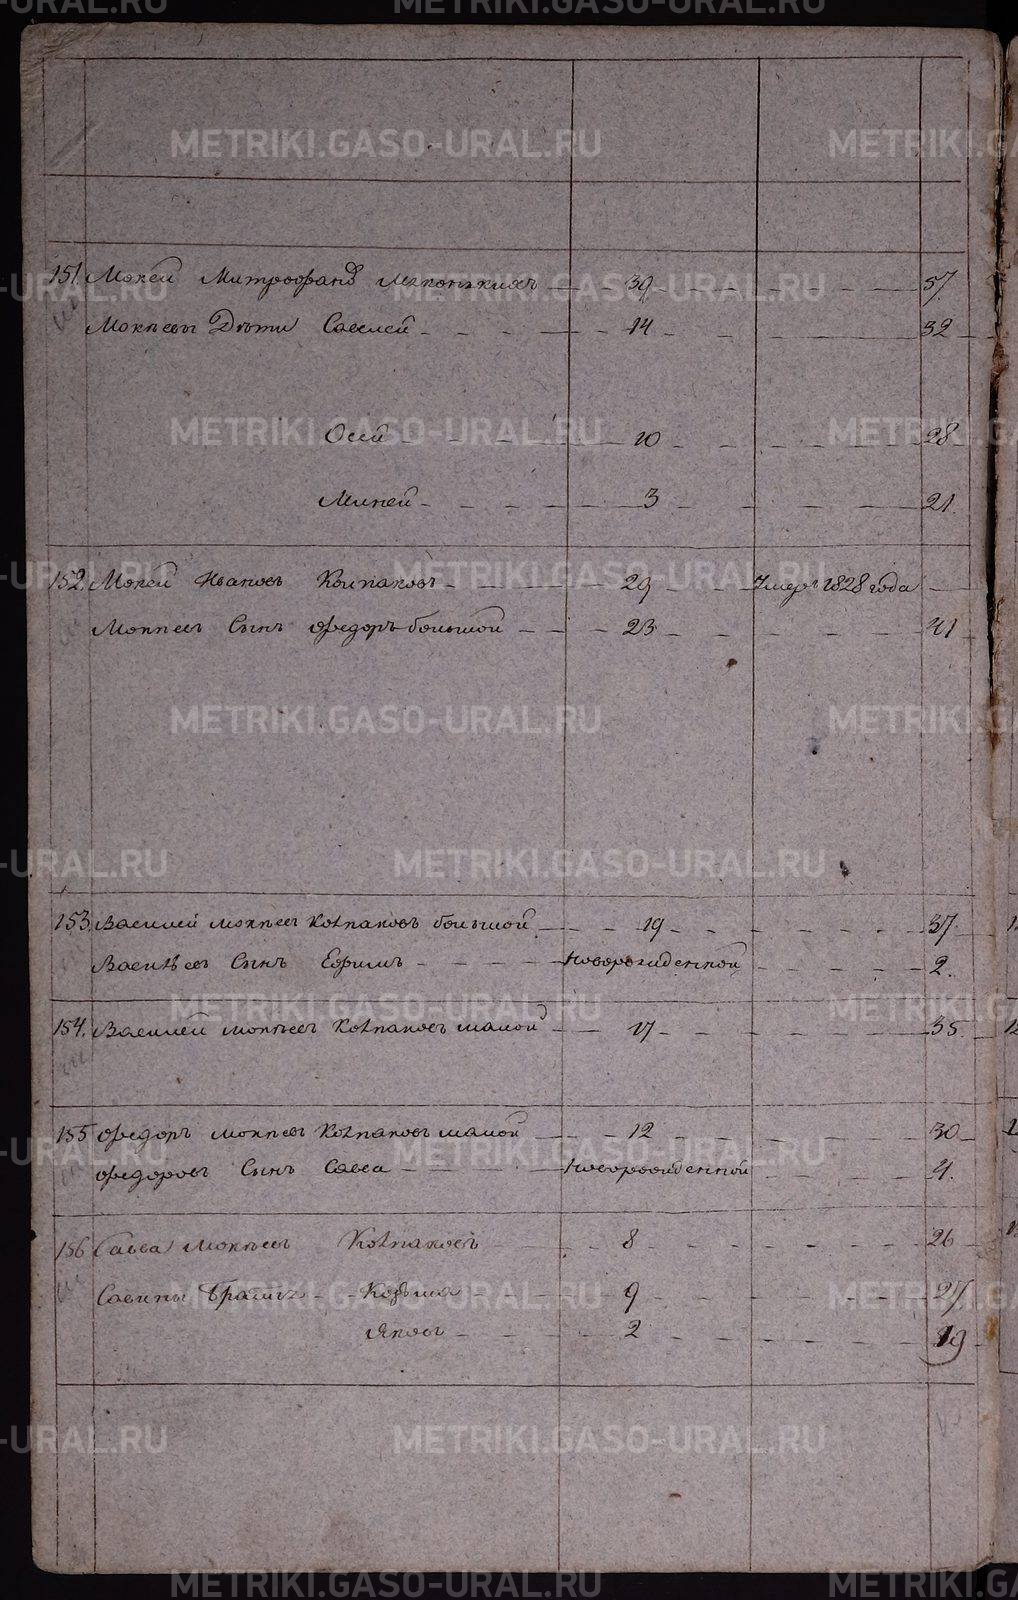 METRIKI.GASO-URAL.RU
151. Мокей Митрофановъ 39 57.
Мокѣевы Дѣти Савелей 14 32
Осей 10 28
Миней 3 21.
152. Мокей Ивановъ Колпаковъ 29 Умеръ 1828 года
Мокѣевъ Сынъ Федоръ большой 23 41
153. Василей Мокѣевъ Колпаковъ большой 19 37.
Васильевъ Сынъ Ефимъ новорожденной 2.
154. Василей Мокѣевъ Колпаковъ малой 17 35.
155 Федоръ Мокѣевъ Колпаковъ малой 12 30
Федоровъ Сынъ Савва новорожденной 4.
156 Савва Мокѣевъ Колпаковъ 8 26
Савины Братья Козьма 9 27
Яковъ 2 19